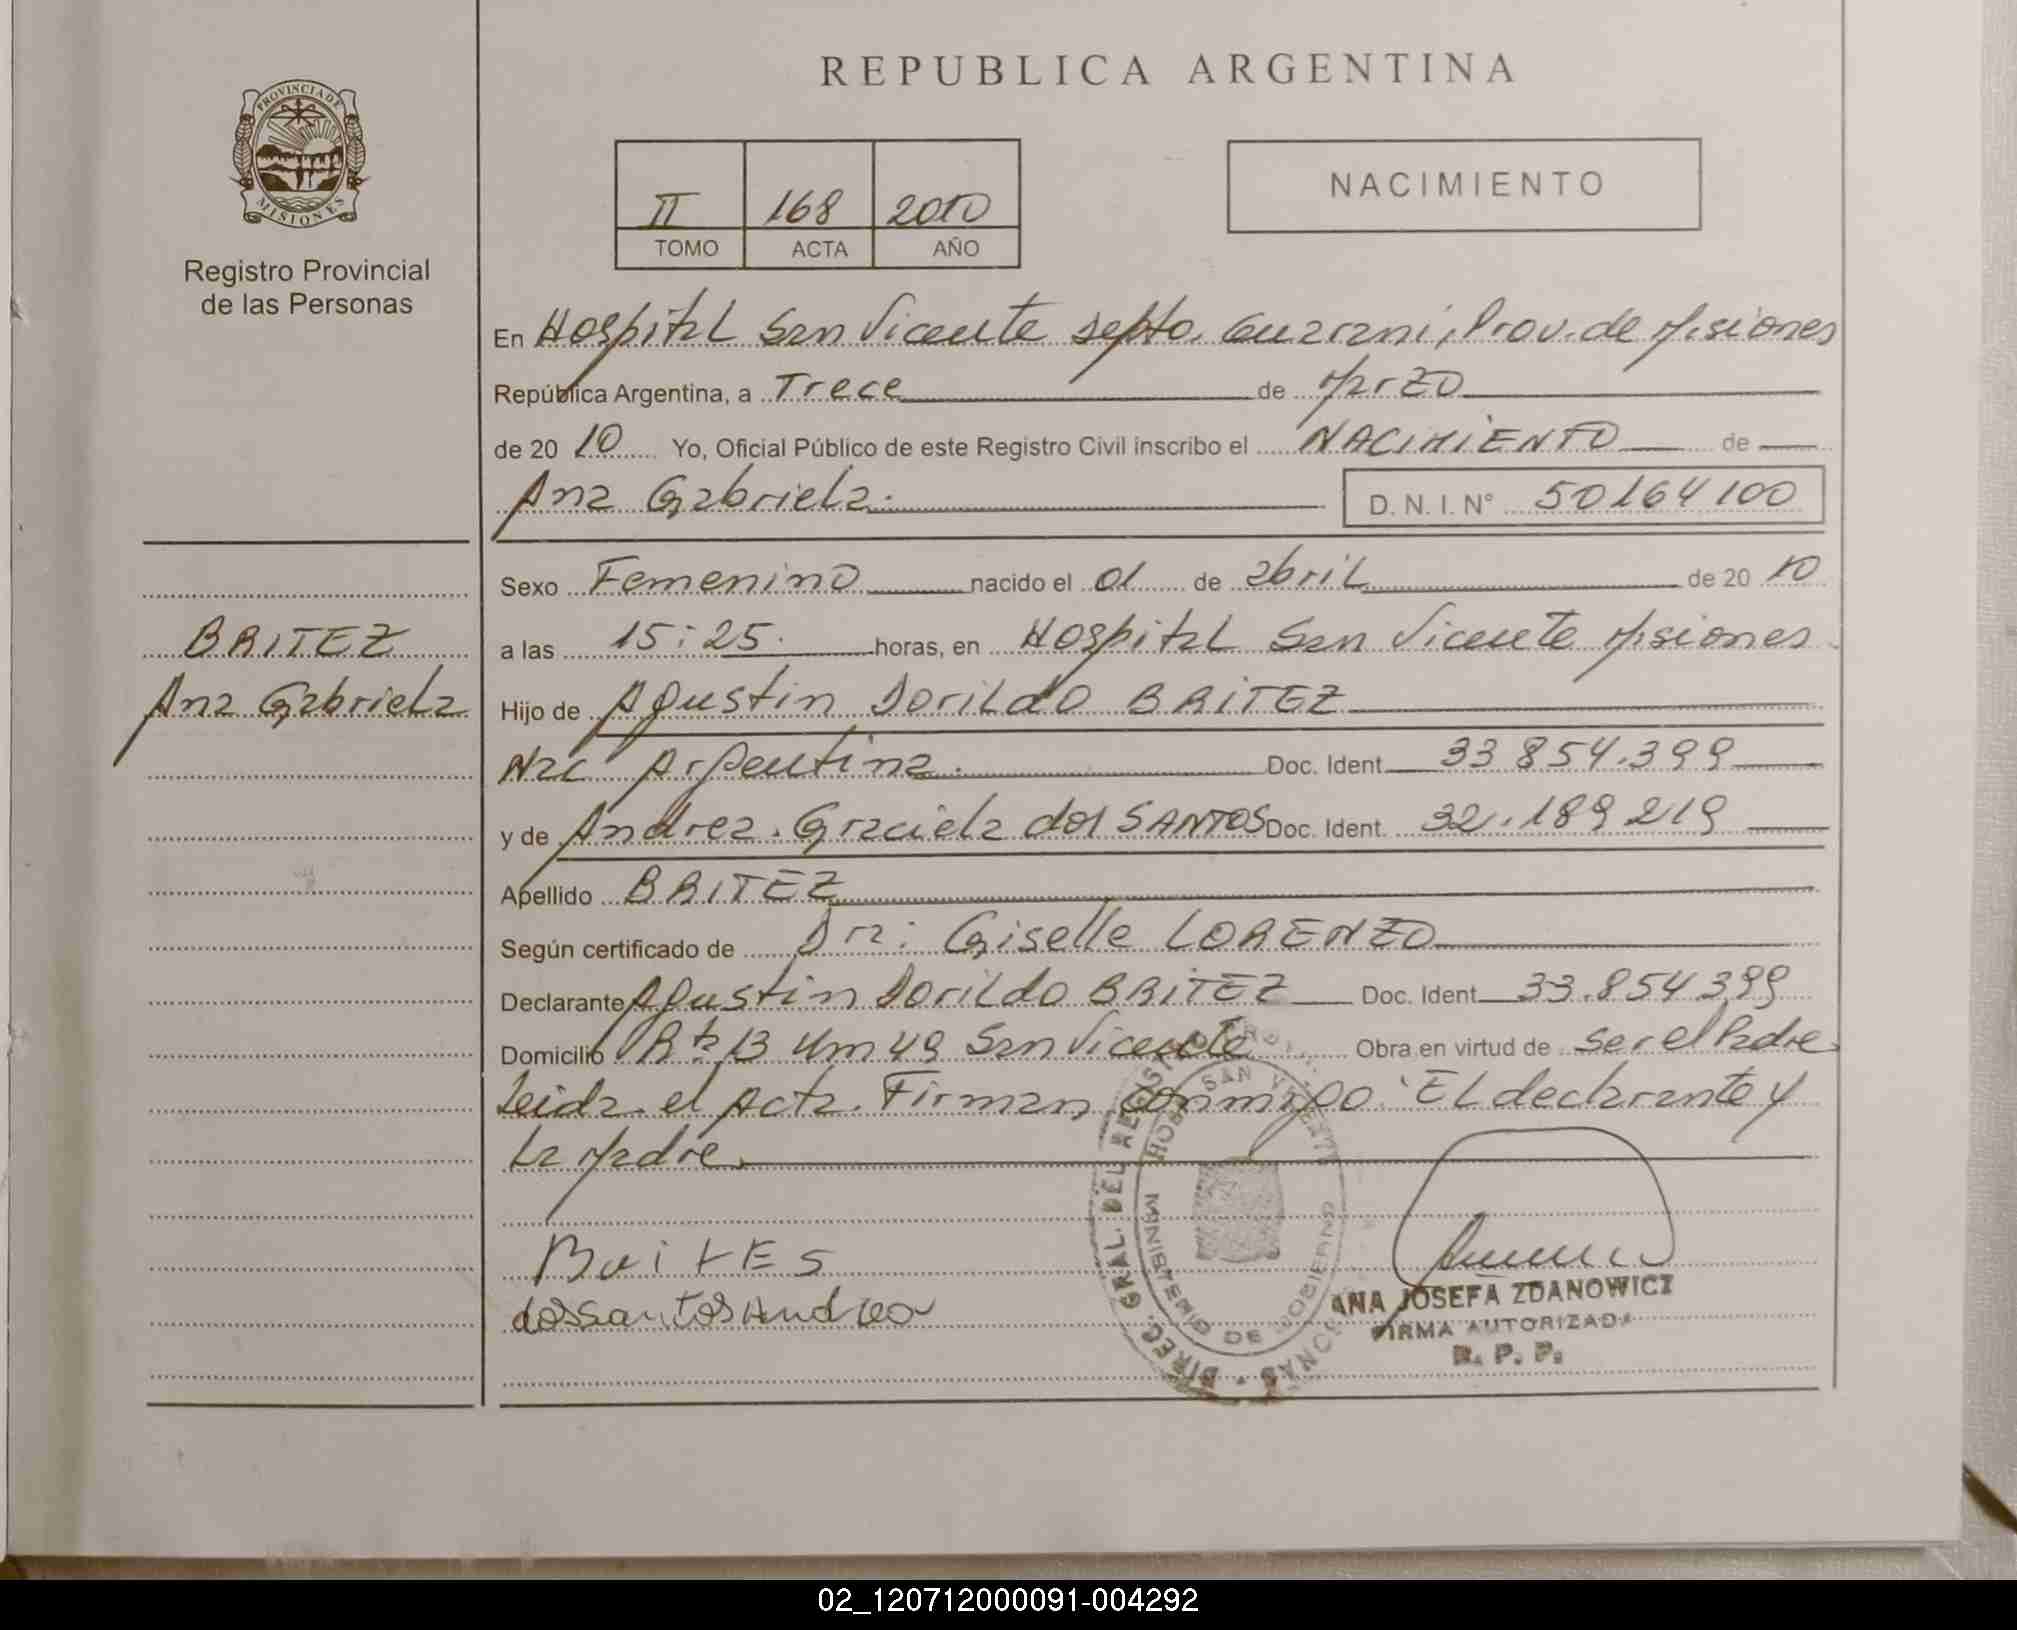 REPUBLICA ARGENTINA
PROVINCIA DE
MISIONES
Registro Provincial
de las Personas
II 168 2010
TOMO ACTA AÑO
NACIMIENTO
En Hospital San Vicente Depto. Guarani, Prov. de Misiones
República Argentina, a Trece de Marzo
de 20 10 Yo, Oficial Público de este Registro Civil inscribo el NACIMIENTO de
Ana Gabriela. D. N. I. N° 50164100
Sexo Femenino nacido el 01 de abril de 20 10
BRITEZ
Ana Gabriela
a las 15:25. horas, en Hospital San Vicente Misiones
Hijo de Agustin Dorildo BRITEZ
Nac Argentina. Doc. Ident. 33 854.399
y de Andrea. Graciela dos SANTOS Doc. Ident. 32.189 219
Apellido BRITEZ
Según certificado de Dra: Giselle LORENZO
Declarante Agustin Dorildo BRITEZ Doc. Ident. 33.854 399
Domicilio Rta 13 Km 49 San Vicente Obra en virtud de ser el Padre
Leida el Acta. Firman conmigo: El declarante y
la Madre.
BRiTES
dos Santos Andrea
DIREC. GRAL. DEL REGISTRO
HOSP. SAN VICENTE
MINISTERIO DE GOBIERNO
ANA JOSEFA ZDANOWICZ
FIRMA AUTORIZADA
R. P. P.
02_120712000091-004292